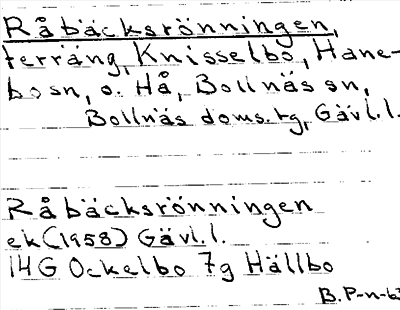 Råbäcksrönningen,
terräng, Knisselbo, Hane-
bo sn, o. Hå, Bollnäs sn,
Bollnäs doms. tg, Gävl. l.
Råbäcksrönningen
ek (1958) Gävl. l.
14G Ockelbo 7g Hällbo